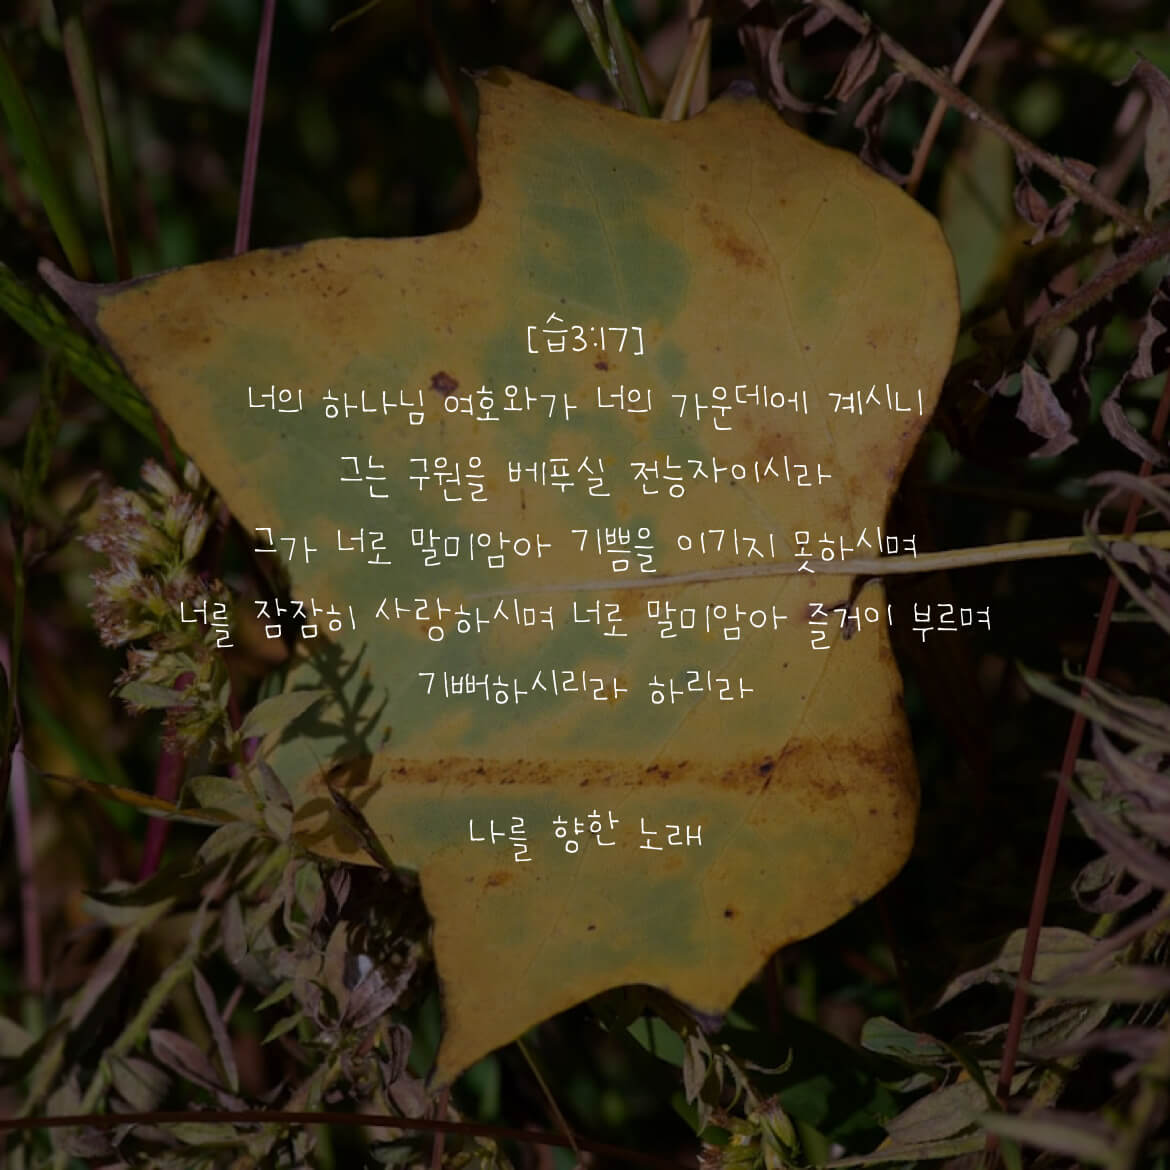 [습3:17]
너의 하나님 여호와가 너의 가운데에 계시니
그는 구원을 베푸실 전능자이시라
그가 너로 말미암아 기쁨을 이기지 못하시며
너를 잠잠히 사랑하시며 너로 말미암아 즐거이 부르며
기뻐하시리라 하리라
나를 향한 노래